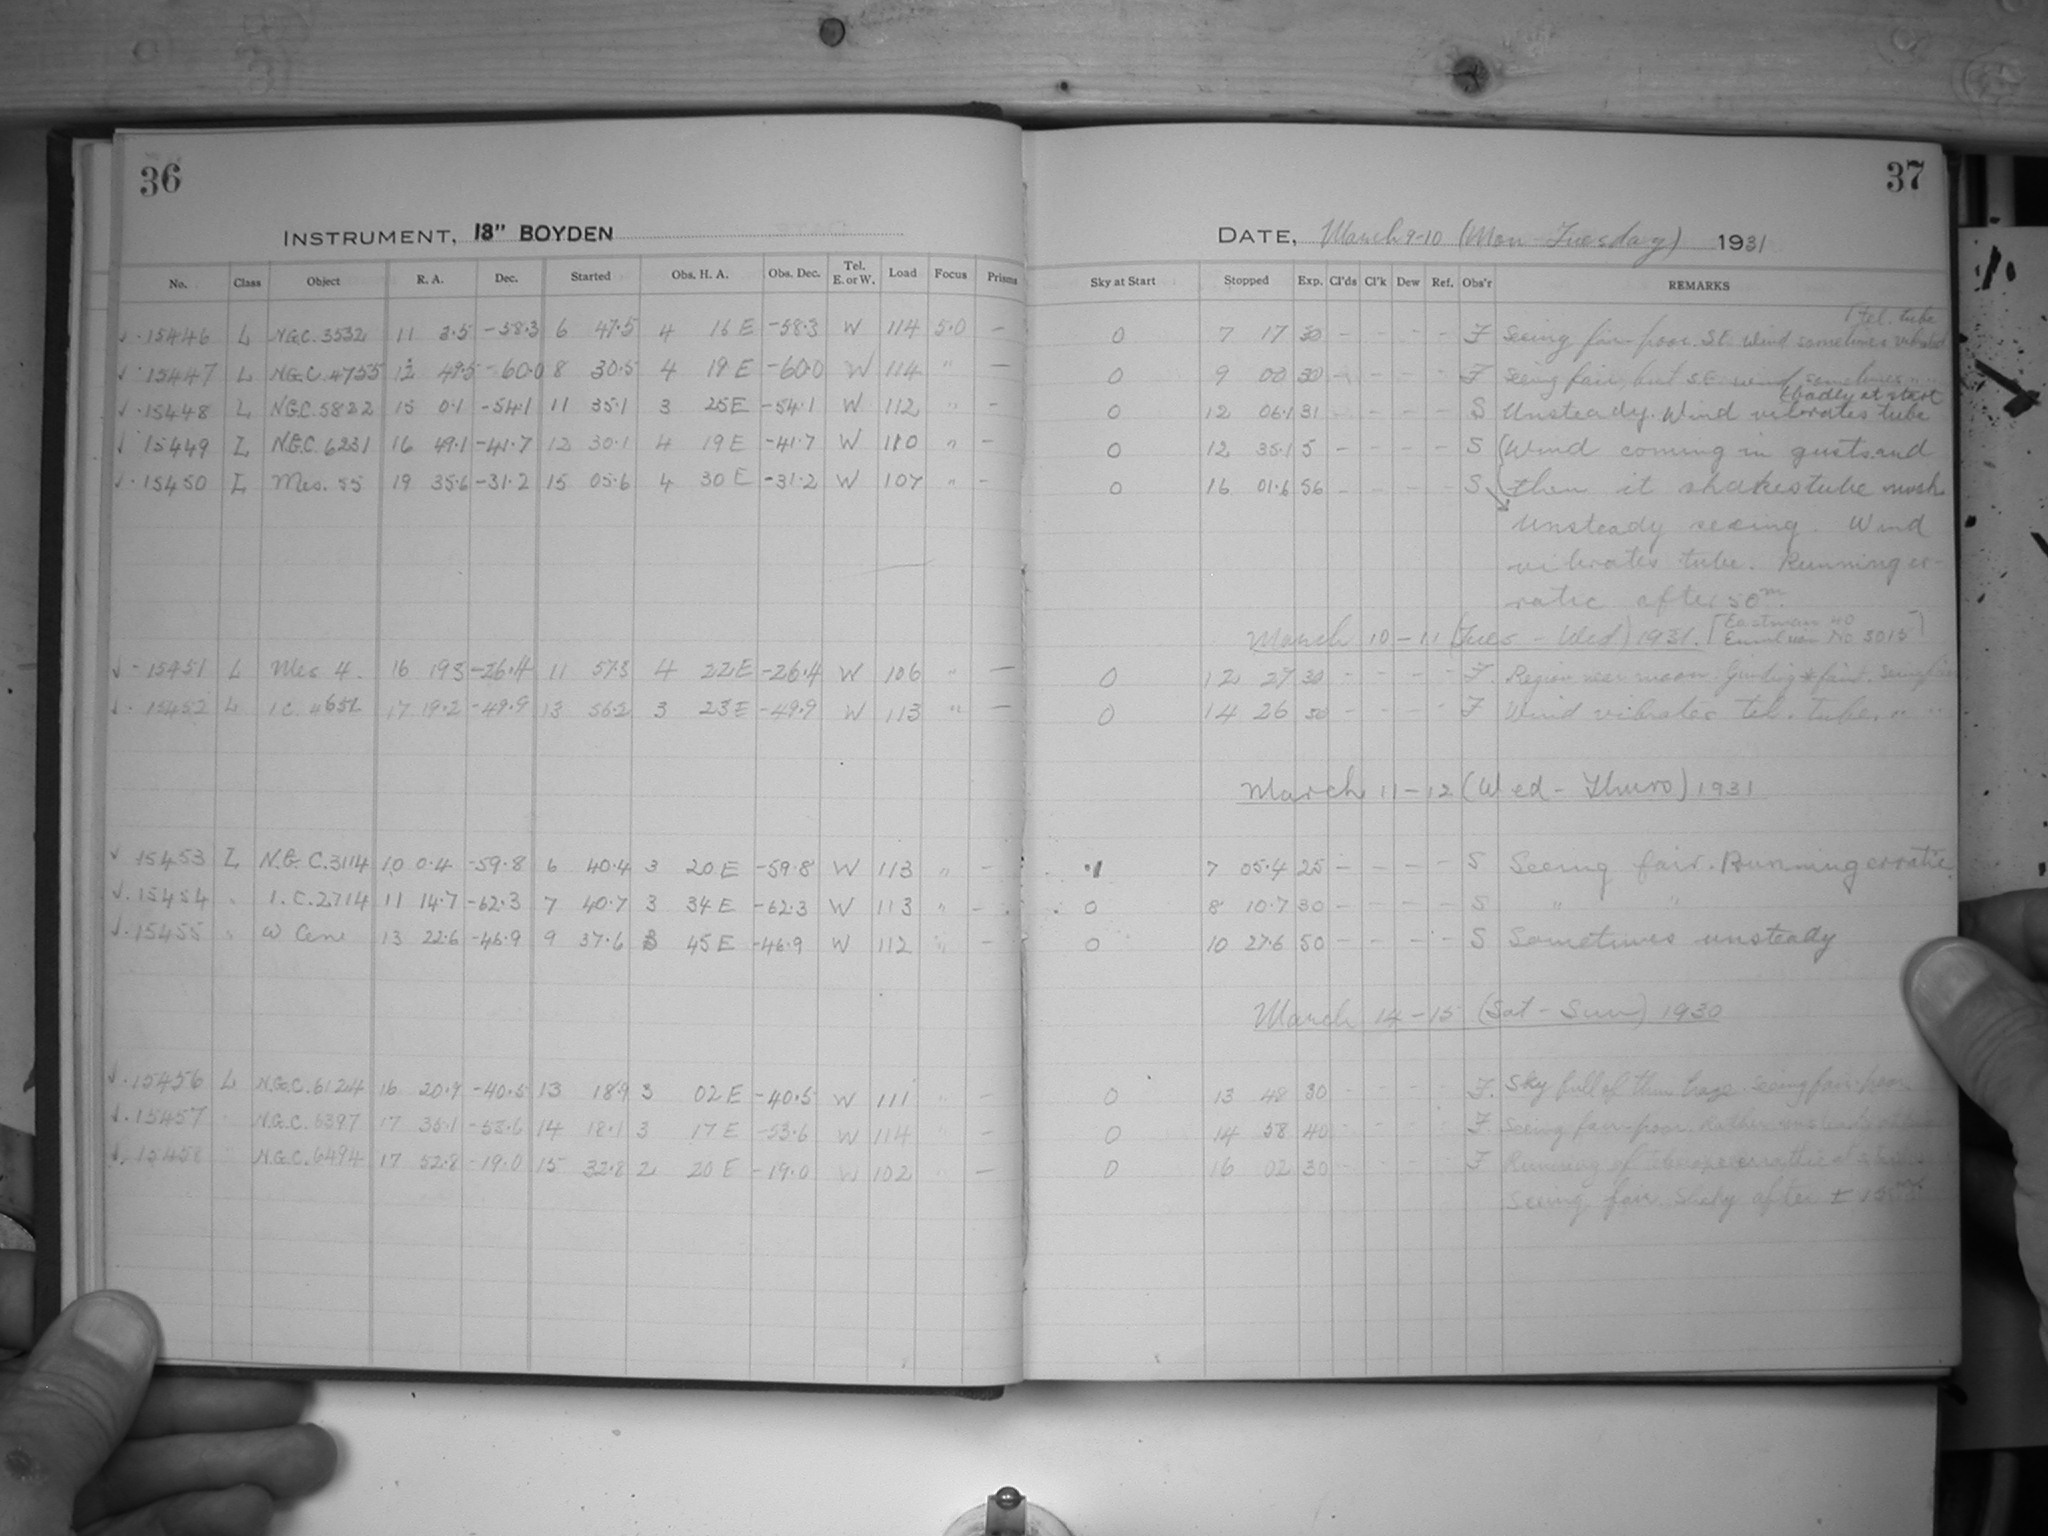 36
INSTRUMENT, 13" BOYDEN
No. Class Object R. A. Dec. Started Obs. H. A. Obs. Dec. Tel. E. or W. Load Focus Prisms
√ · 15446 L N.G.C. 3532 11 2.5 -58.3 6 47.5 4 16 E -58.3 W 114 5.0 -
√ · 15447 L N.G.C. 4755 12 49.5 -60.0 8 30.5 4 19 E -60.0 W 114 " -
√ · 15448 L N.G.C. 5822 15 0.1 -54.1 11 35.1 3 25 E -54.1 W 112 " -
√ · 15449 L N.G.C. 6231 16 49.1 -41.7 12 30.1 4 19 E -41.7 W 110 " -
√ · 15450 L Mes. 55 19 35.6 -31.2 15 05.6 4 30 E -31.2 W 107 " -
√ - 15451 L Mes 4. 16 19.3 -26.4 11 57.3 4 22 E -26.4 W 106 " -
√ · 15452 L I.C. 4651 17 19.2 -49.9 13 56.2 3 23 E -49.9 W 113 " -
√ 15453 L N.G.C. 3114 10 0.4 -59.8 6 40.4 3 20 E -59.8 W 113 " -
√ · 15454 " I.C. 2714 11 14.7 -62.3 7 40.7 3 34 E -62.3 W 113 " -
√ · 15455 " W Cen 13 22.6 -46.9 9 37.6 3 45 E -46.9 W 112 " -
√ · 15456 L N.G.C. 6124 16 20.9 -40.5 13 18.9 3 02 E -40.5 W 111 " -
√ · 15457 " N.G.C. 6397 17 35.1 -53.6 14 18.1 3 17 E -53.6 W 114 " -
√ · 15458 " N.G.C. 6494 17 52.8 -19.0 15 32.8 2 20 E -19.0 W 102 " -
37
DATE, March 9-10 (Mon - Tuesday) 1931
Sky at Start Stopped Exp. Cl'ds Cl'k Dew Ref. Obs'r REMARKS
Tel. tube
0 7 17 30 - - - - F Seeing fair-poor. SE wind sometimes vibrated
0 9 00 30 - - - - F Seeing fair, but S.E. wind sometimes " "
badly at start
0 12 06.1 31 - - - - S Unsteady. Wind vibrates tube
0 12 35.1 5 - - - - S Wind coming in gusts and
0 16 01.6 56 - - - - S then it shakes tube much.
Unsteady seeing. Wind
vibrates tube. Running er-
ratic after 50m.
March 10-11 (Tues - Wed) 1931. [Eastman 40
Emulsion No 3015]
0 12 27 30 - - - - F. Region near moon. Guiding * faint. Seeing fair
0 14 26 30 - - - - F Wind vibrates tel. tube. " "
March 11-12 (Wed - Thurs) 1931
·1 7 05.4 25 - - - - S Seeing fair. Running erratic
0 8 10.7 30 - - - - S " "
0 10 27.6 50 - - - - S Sometimes unsteady
March 14-15 (Sat - Sun) 1930
0 13 48 30 - - - - F. Sky full of thin haze. Seeing fair-poor
0 14 58 40 - - - - F. Seeing fair-poor. Rather unsteady
0 16 02 30 - - - - F Running of
Seeing fair. Shaky after ± 15m.